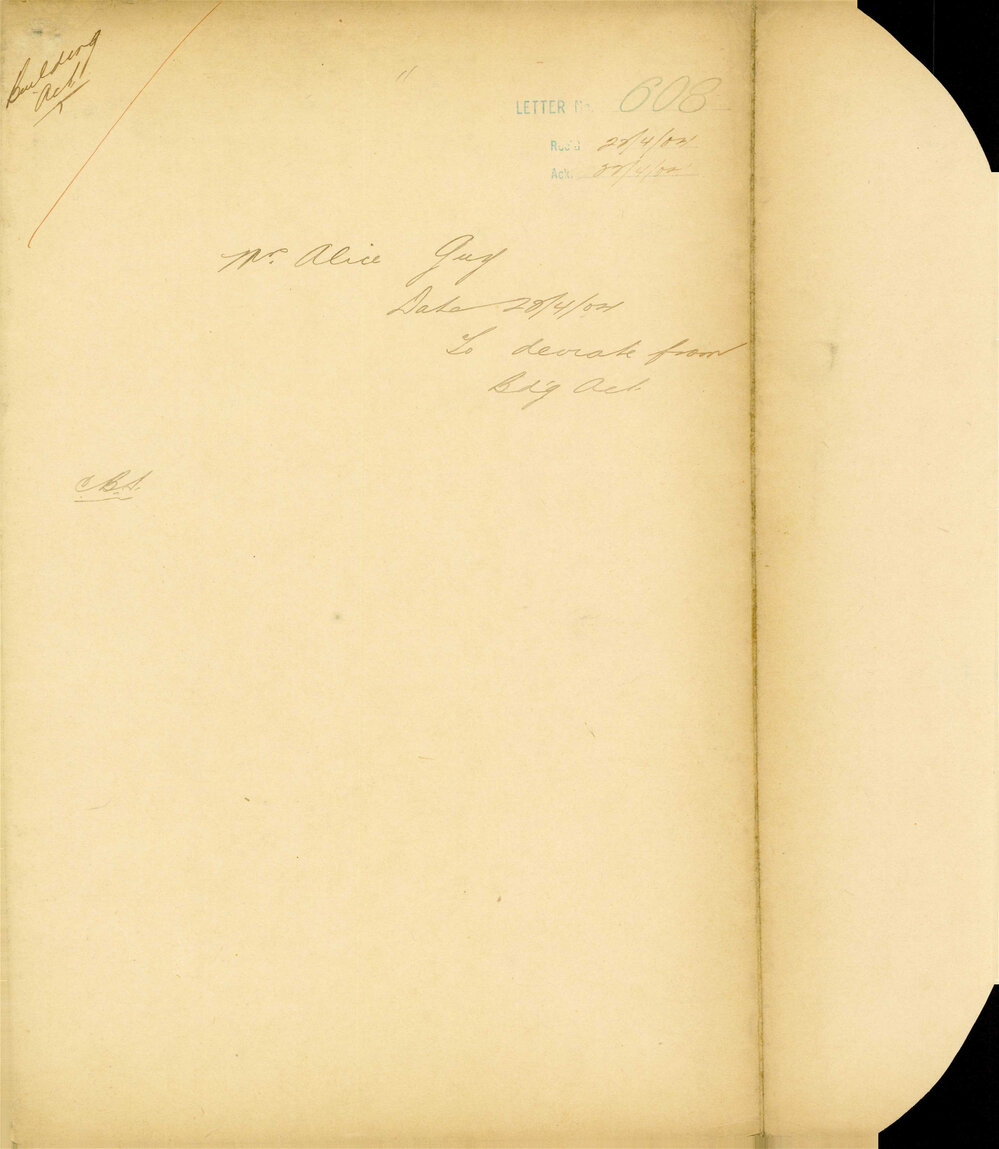 Building
Act
LETTER No. 608
Rec'd 28/4/04
Ack. 28/4/04
Mrs. Alice Guy
Date 28/4/04
To deviate from
Bd'g Act
C.B.S.